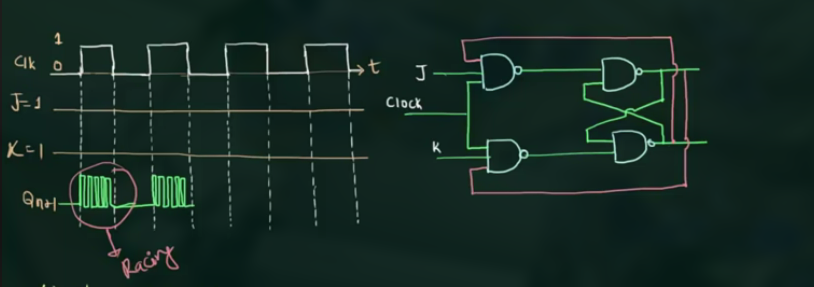 1
Clk 0
t
J=1
K=1
Qn+1
Racing
J
Clock
K